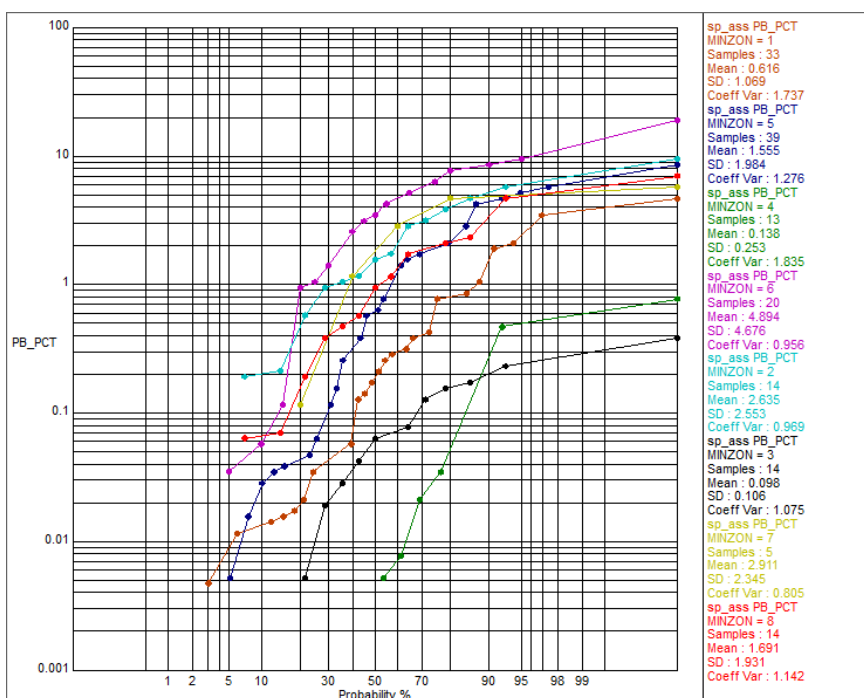 100
10
1
PB_PCT
0.1
0.01
0.001
1 2 5 10 30 50 70 90 95 98 99
Probability %
sp_ass PB_PCT
MINZON = 1
Samples : 33
Mean : 0.616
SD : 1.069
Coeff Var : 1.737
sp_ass PB_PCT
MINZON = 5
Samples : 39
Mean : 1.555
SD : 1.984
Coeff Var : 1.276
sp_ass PB_PCT
MINZON = 4
Samples : 13
Mean : 0.138
SD : 0.253
Coeff Var : 1.835
sp_ass PB_PCT
MINZON = 6
Samples : 20
Mean : 4.894
SD : 4.676
Coeff Var : 0.956
sp_ass PB_PCT
MINZON = 2
Samples : 14
Mean : 2.635
SD : 2.553
Coeff Var : 0.969
sp_ass PB_PCT
MINZON = 3
Samples : 14
Mean : 0.098
SD : 0.106
Coeff Var : 1.075
sp_ass PB_PCT
MINZON = 7
Samples : 5
Mean : 2.911
SD : 2.345
Coeff Var : 0.805
sp_ass PB_PCT
MINZON = 8
Samples : 14
Mean : 1.691
SD : 1.931
Coeff Var : 1.142